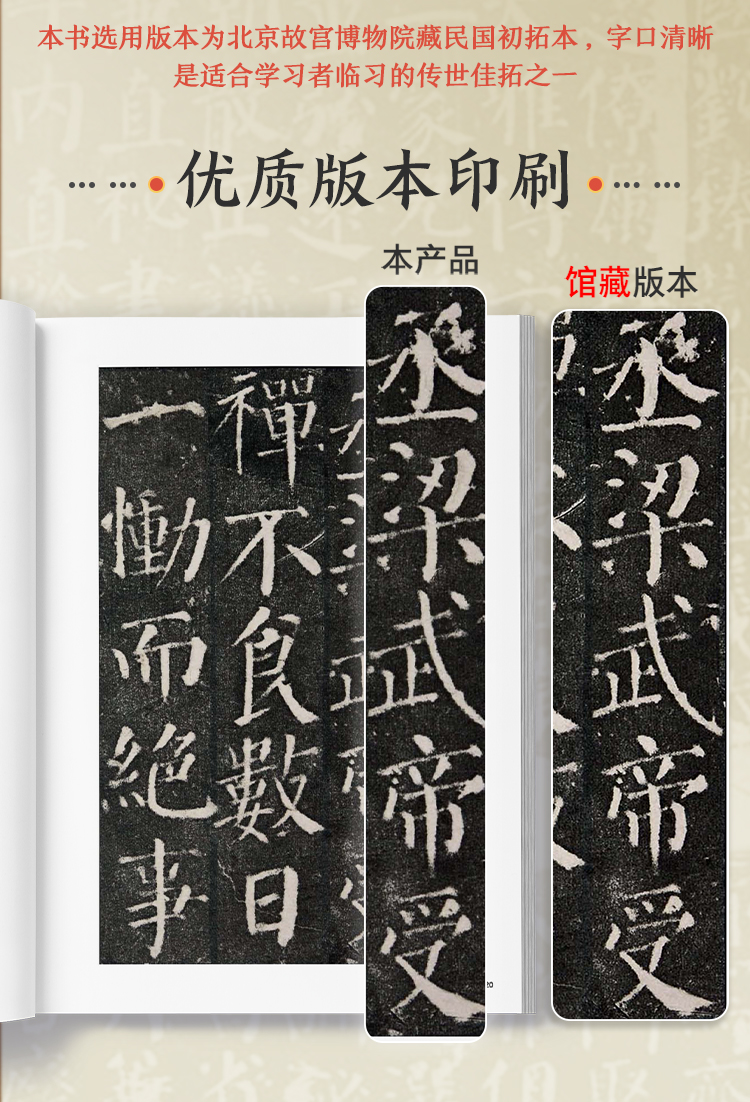 本书选用版本为北京故宫博物院藏民国初拓本，字口清晰
是适合学习者临习的传世佳拓之一
优质版本印刷
本产品
馆藏版本
丞梁武帝受
禪不食數日
一慟而絕事
丞梁武帝受
20